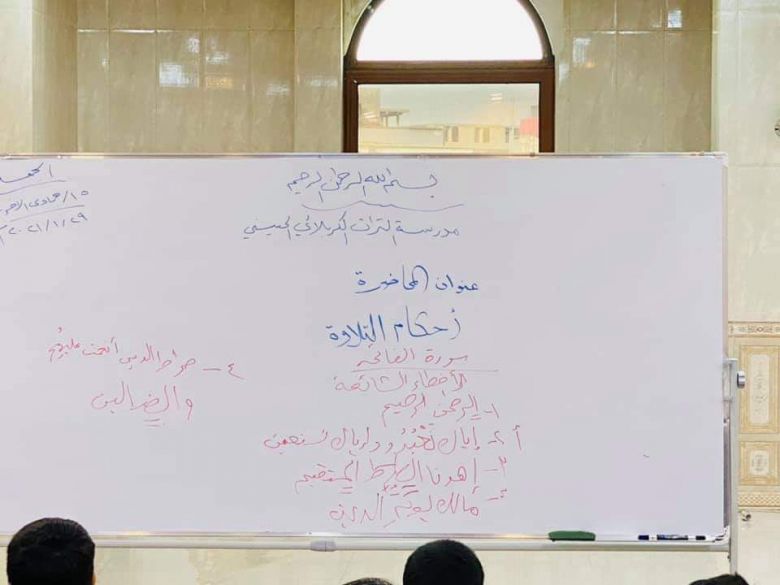 بسم الله الرحمن الرحيم
مدرسة التراث الكربلائي الحسيني
عنوان المحاضرة
أحكام التلاوة
سورة الفاتحة
الأخطاء الشائعة
١- الرحمن الرحيم
٢- إياك نعبد وإياك نستعين
٣- إهدنا الصراط المستقيم
مالك يوم الدين
٤- صراط الذين أنعمت عليهم
والضالين
الجمعة
١٥/جمادى
٢٠٢١/١/٢٩